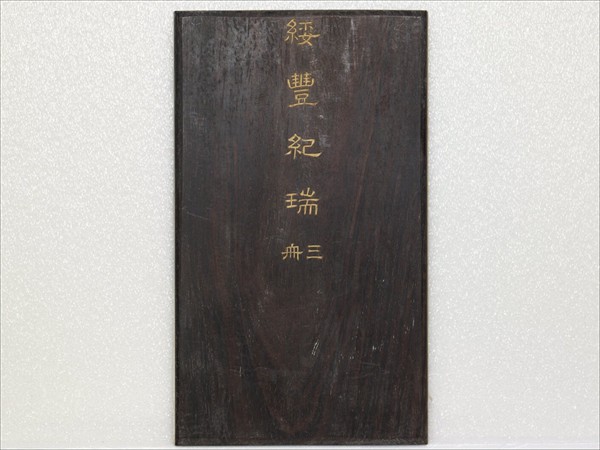 綏豐紀瑞
三册